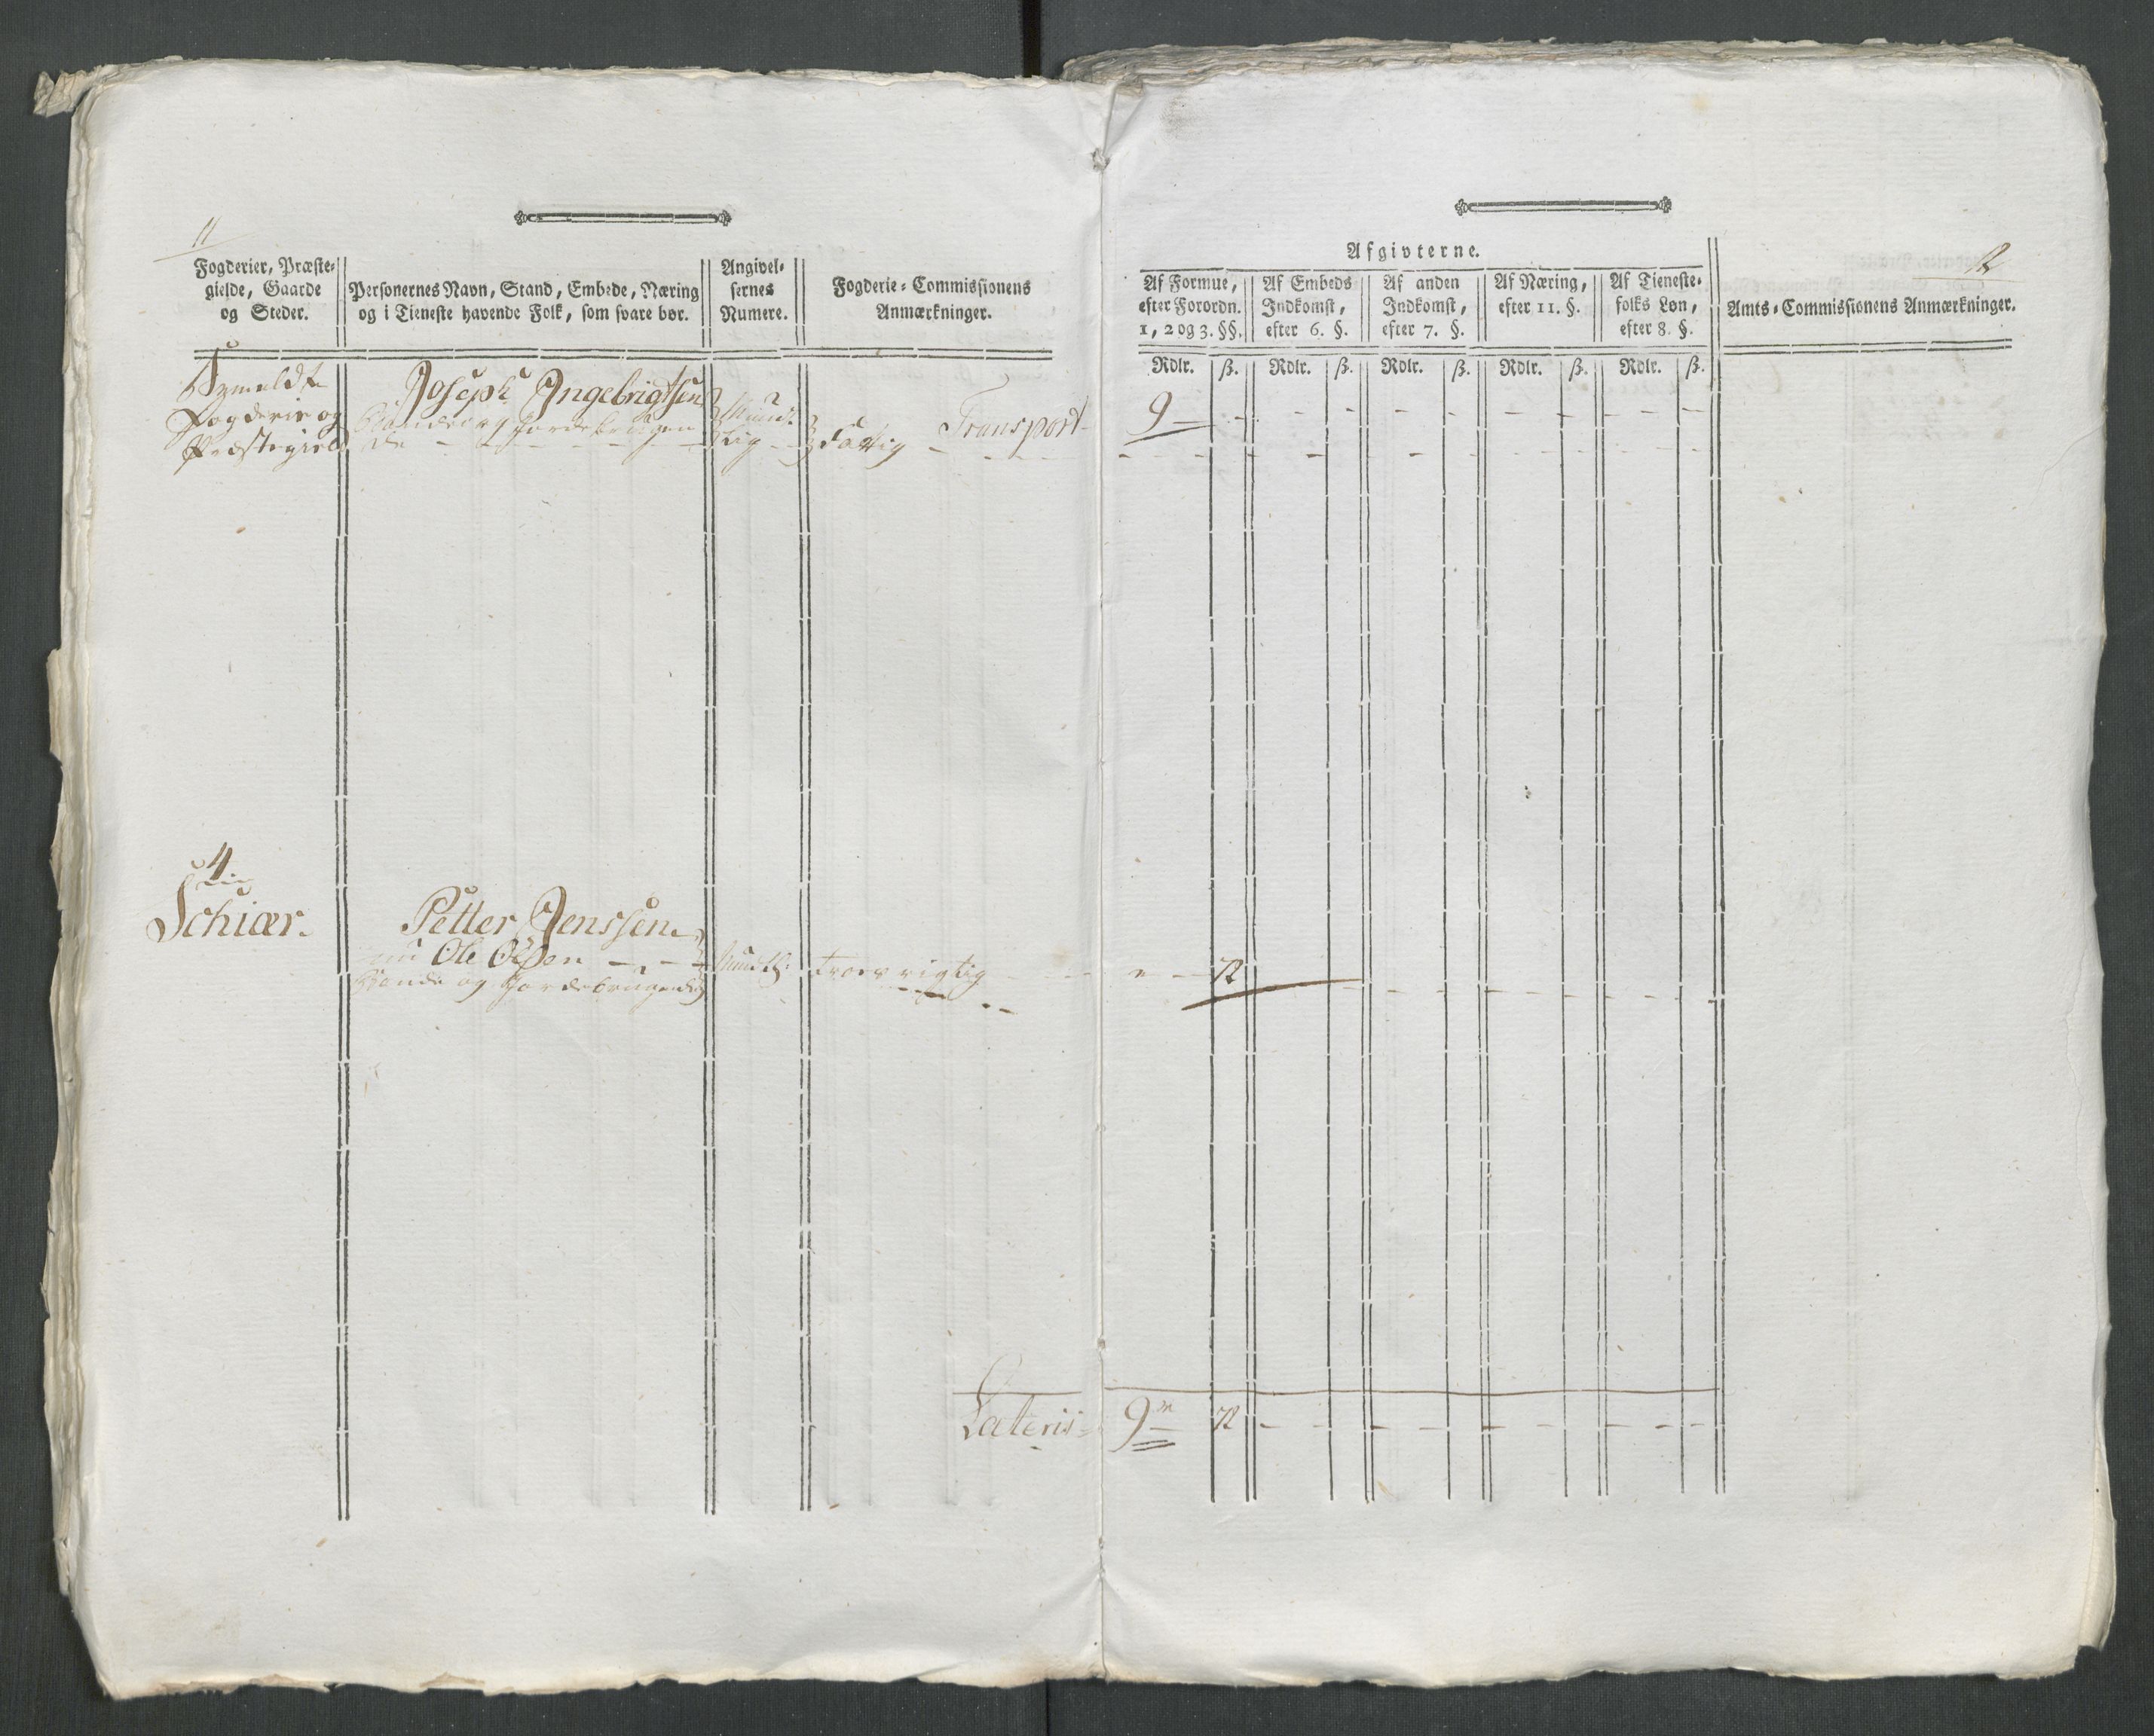 11
Fogderier, Præste-
gielde, Gaarde
og Steder.
Personernes Navn, Stand, Embede, Næring
og i Tieneste havende Folk, som svare bør.
Angivel-
sernes
Numere.
Fogderie-Commissionens
Anmærkninger.
Fogderie og
Præstegield
Joseph Ingebrigtsen
Bonde og Jordebrugen
de
Mundt
lig
Fattig
Transport
4
Schiær.
Petter Jenssen
nu Ole Olsen
Bonde og Jordebrugende
Mundtl:
Troe rigtig
Lateris
12
Afgivterne.
Af Formue,
efter Forordn.
1, 2 og 3. §§.
Af Embeds
Indkomst,
efter 6. §.
Af anden
Indkomst,
efter 7. §.
Af Næring,
efter 11. §.
Af Tieneste-
folks Løn,
efter 8. §.
Amts-Commissionens Anmærkninger.
Rdlr. ß. Rdlr. ß. Rdlr. ß. Rdlr. ß. Rdlr. ß.
9
72
9 72